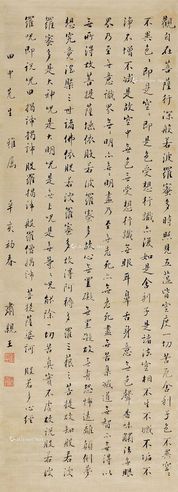 觀自在菩薩行深般若波羅蜜多時照見五蘊皆空度一切苦厄舍利子色不異空空
不異色色即是空空即是色受想行識亦復如是舍利子是諸法空相不生不滅不垢不
淨不增不減是故空中無色無受想行識無眼耳鼻舌身意無色聲香味觸法無眼
界乃至無意識界無無明亦無無明盡乃至無老死亦無老死盡無苦集滅道無智亦無得以
無所得故菩提薩埵依般若波羅蜜多故心無罣礙無罣礙故無有恐怖遠離顛倒夢
想究竟涅槃三世諸佛依般若波羅蜜多故得阿耨多羅三藐三菩提故知般若波
羅蜜多是大神呪是大明呪是無上呪是無等等呪能除一切苦真實不虛故說般若波
羅呪即說呪曰揭諦揭諦般羅揭諦般羅僧揭諦菩提薩婆訶 般若多心經
田中先生 雅屬 辛亥初春 肅親王